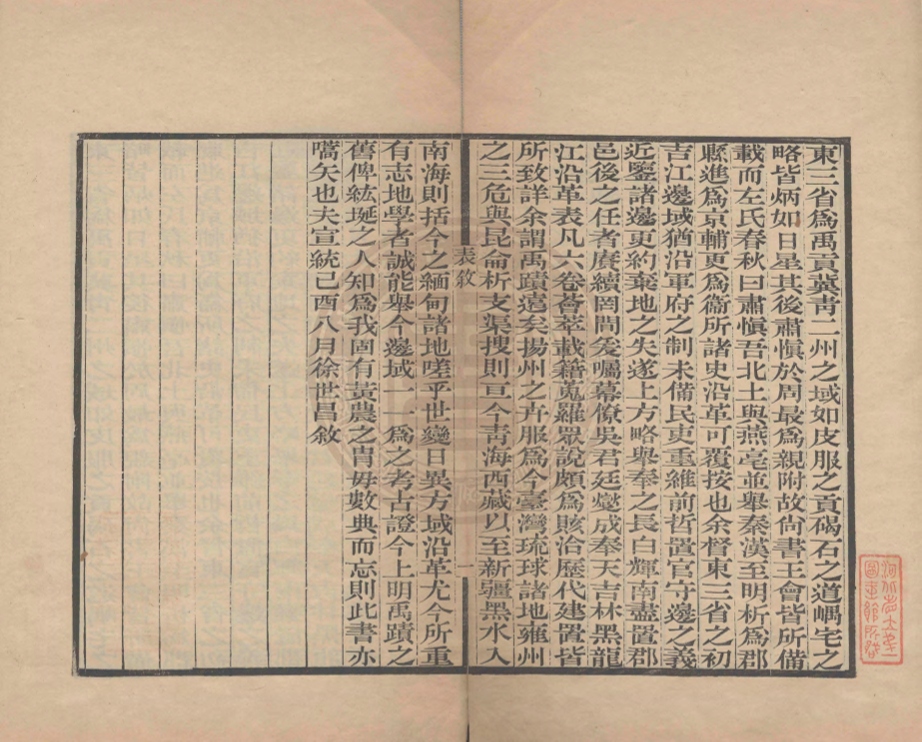 東三省為禹貢冀青二州之域如皮服之貢碣石之道嵎宅之
略皆炳如日星其後肅愼於周最為親附故尙書王會皆所備
載而左氏春秋曰肅愼吾北土與燕亳並舉秦漢至明析為郡
縣進為京輔更為衞所諸史沿革可覆按也余督東三省之初
吉江邊域猶沿軍府之制未備民吏重維前哲置官守邊之義
近鑒諸邊更約棄地之失遂上方略舉奉之長白輝南盡置郡
邑後之任者賡續罔閒爰囑幕僚吳君廷燮成奉天吉林黑龍
江沿革表凡六卷薈萃載籍蒐羅眾說頗為賅洽歷代建置皆
所致詳余謂禹蹟遠矣揚州之卉服為今臺灣琉球諸地雍州
之三危與昆侖析支渠搜則亘今青海西藏以至新疆黑水入
表敘
一
南海則括今之緬甸諸地嗟乎世變日異方域沿革尤今所重
有志地學者誠能舉今邊域一一為之考古證今上明禹蹟之
舊俾紘埏之人知為我固有黃農之胄毋數典而忘則此書亦
嚆矢也夫宣統己酉八月徐世昌敘